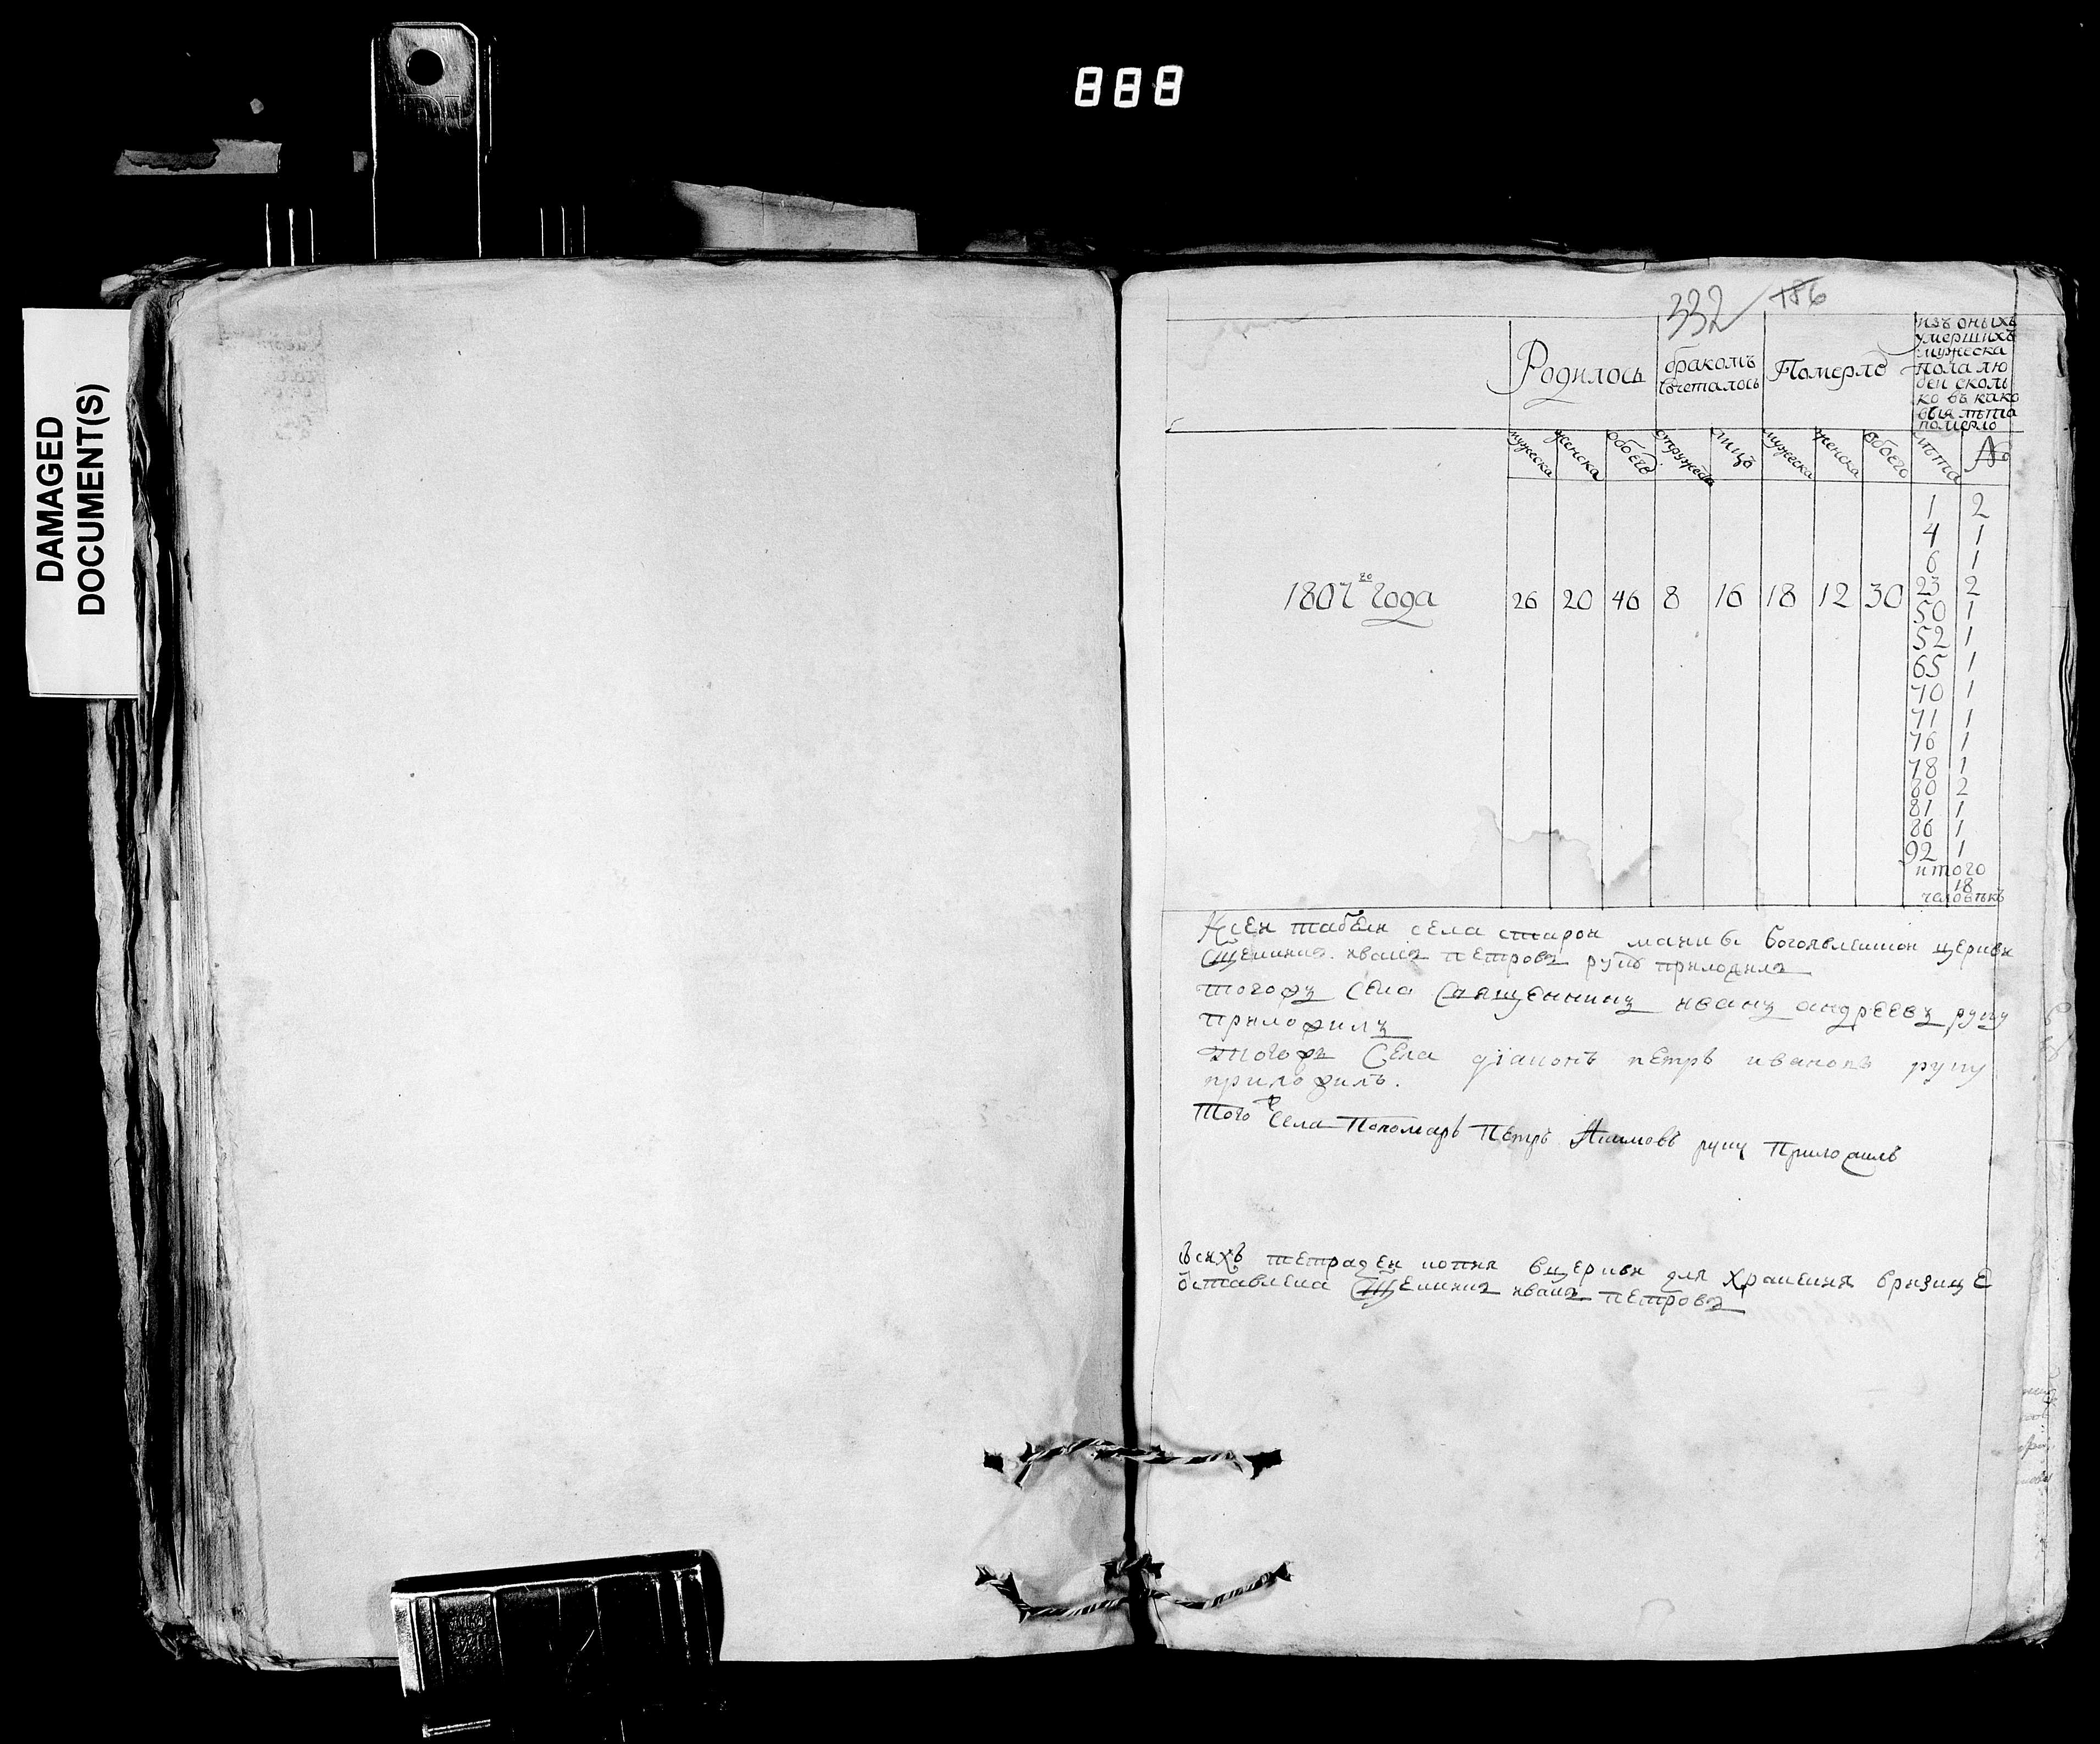 888
DAMAGED
DOCUMENT(S)
332 186
Родилось
бракомъ
сочеталось
Померло
изъ оныхъ
умершихъ
мужеска
пола лю
деи сколь
ко въ како
выя лѣта
померло
мужеска женска обоего супружесв лицъ мужеска женска обоего лѣта №
1 2
4 1
6 1
23 2
1807го года 26 20 46 8 16 18 12 30
50 1
52 1
65 1
70 1
71 1
76 1
78 1
80 2
81 1
86 1
92 1
итого
18
человѣкъ
Ксеи табели села старои богоявленнои церкви
Сщенникъ иванъ петровъ руку приложилъ
тогожъ села священникъ иванъ андреевъ руку
приложилъ
тогожъ села діаконъ петръ ивановъ руку
приложилъ.
Того ж села Пономарь Петръ Акимовъ руку Приложилъ
Ѣсихъ тетрадеи копия вцеркви для хранения вризице
оставлена Сщенникъ иванъ петровъ